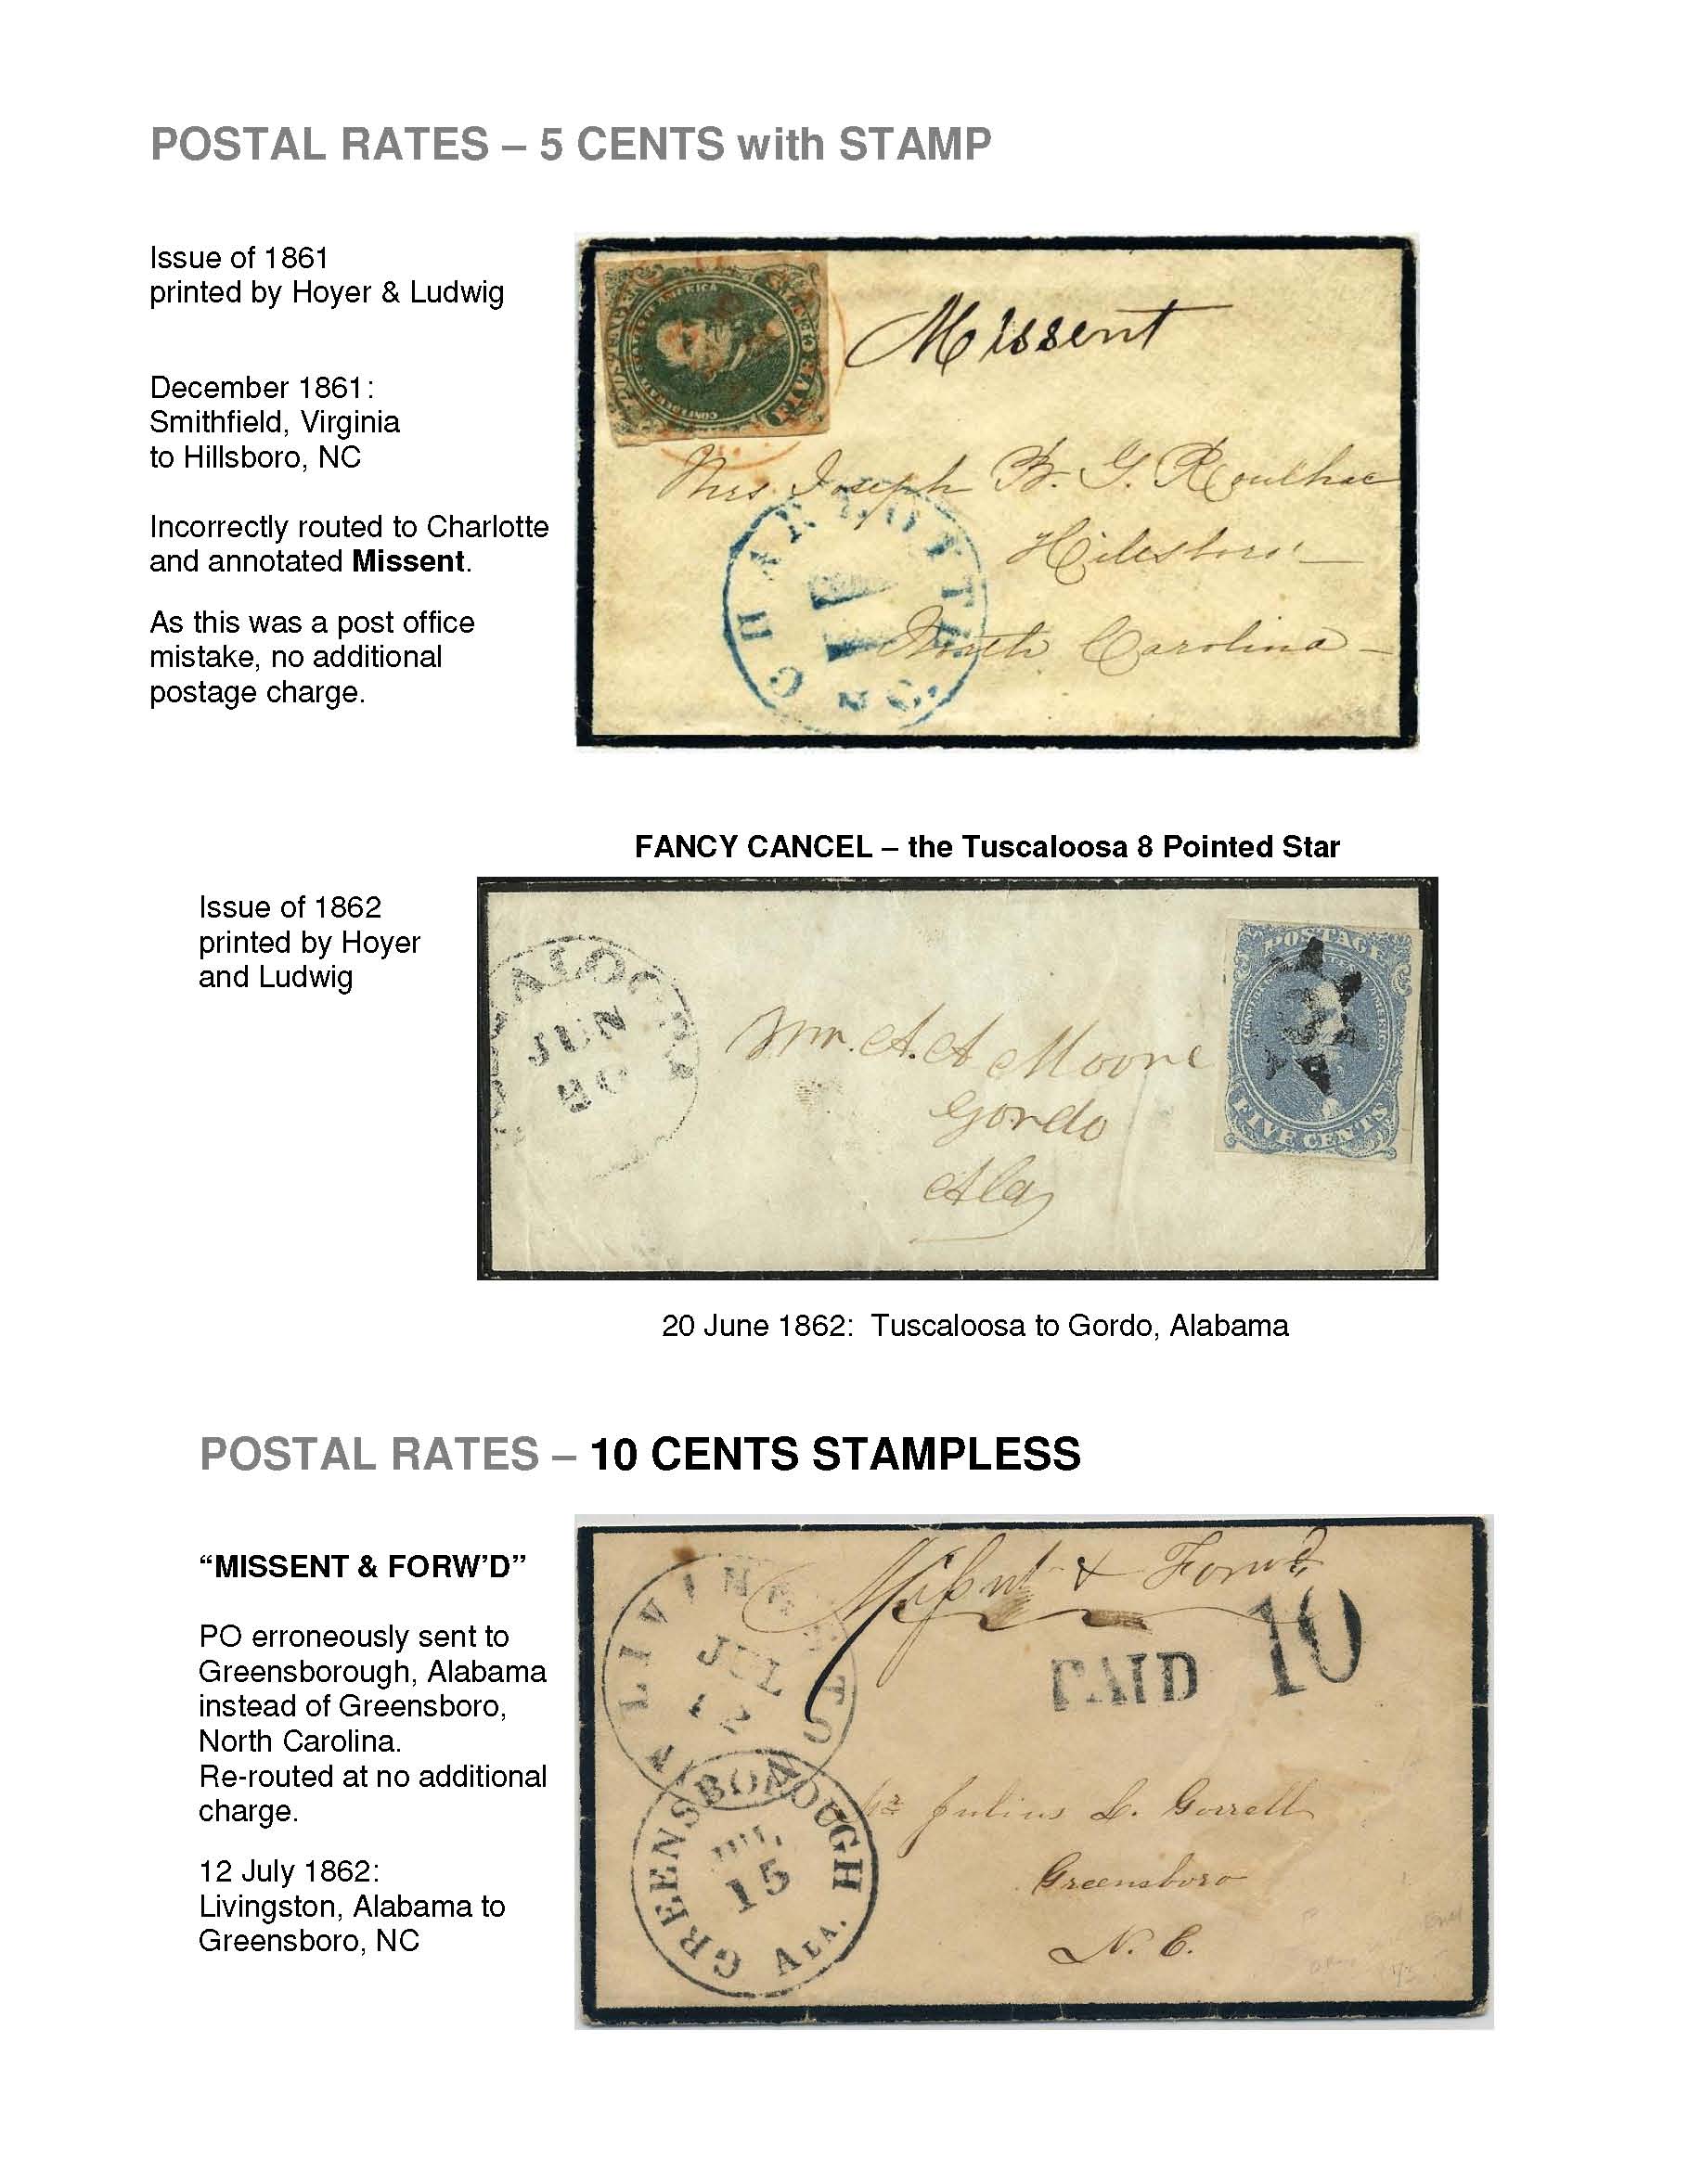 POSTAL RATES – 5 CENTS with STAMP
Issue of 1861
printed by Hoyer & Ludwig
December 1861:
Smithfield, Virginia
to Hillsboro, NC
Incorrectly routed to Charlotte
and annotated Missent.
As this was a post office
mistake, no additional
postage charge.
AMERICA
FIVE CENTS
Missent
Mrs. Joseph B. G. Roulhac
Hillsboro'
North Carolina
CHARLOTTE
N C
FANCY CANCEL – the Tuscaloosa 8 Pointed Star
Issue of 1862
printed by Hoyer
and Ludwig
JUN
20
Mr. A. A Moore
Gordo
Ala
POSTAGE
FIVE CENTS
20 June 1862: Tuscaloosa to Gordo, Alabama
POSTAL RATES – 10 CENTS STAMPLESS
“MISSENT & FORW’D”
PO erroneously sent to
Greensborough, Alabama
instead of Greensboro,
North Carolina.
Re-routed at no additional
charge.
12 July 1862:
Livingston, Alabama to
Greensboro, NC
Missent & Forwd
PAID 10
LIVINGSTON
JUL
12
GREENSBOROUGH
JUL
15
ALA.
Mr Julius L. Gorrell
Greensboro
N. C.